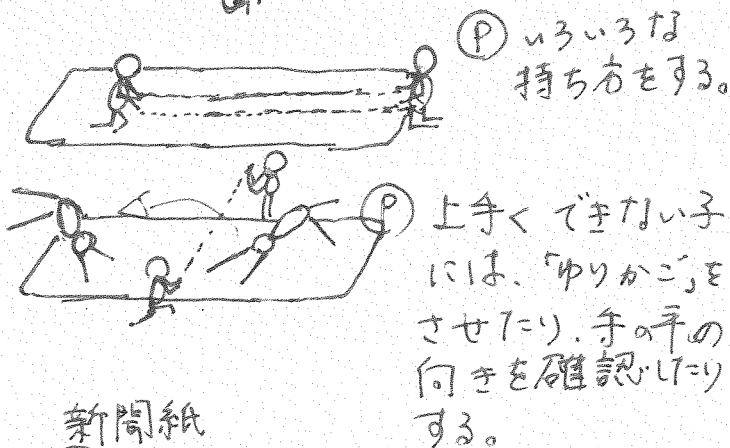 Ⓟ いろいろな
持ち方をする。
Ⓟ 上手くできない子
には、「ゆりかご」を
させたり、手の平の
向きを確認したり
する。
新聞紙